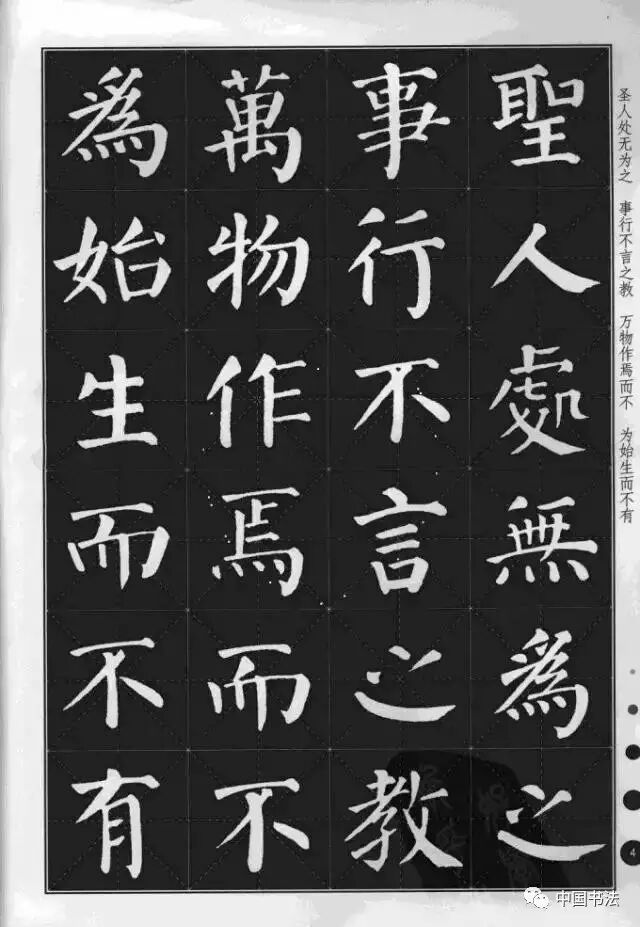 聖人處無為之
事行不言之教
萬物作焉而不
為始生而不有
圣人处无为之 事行不言之教 万物作焉而不 为始生而不有
4
中国书法